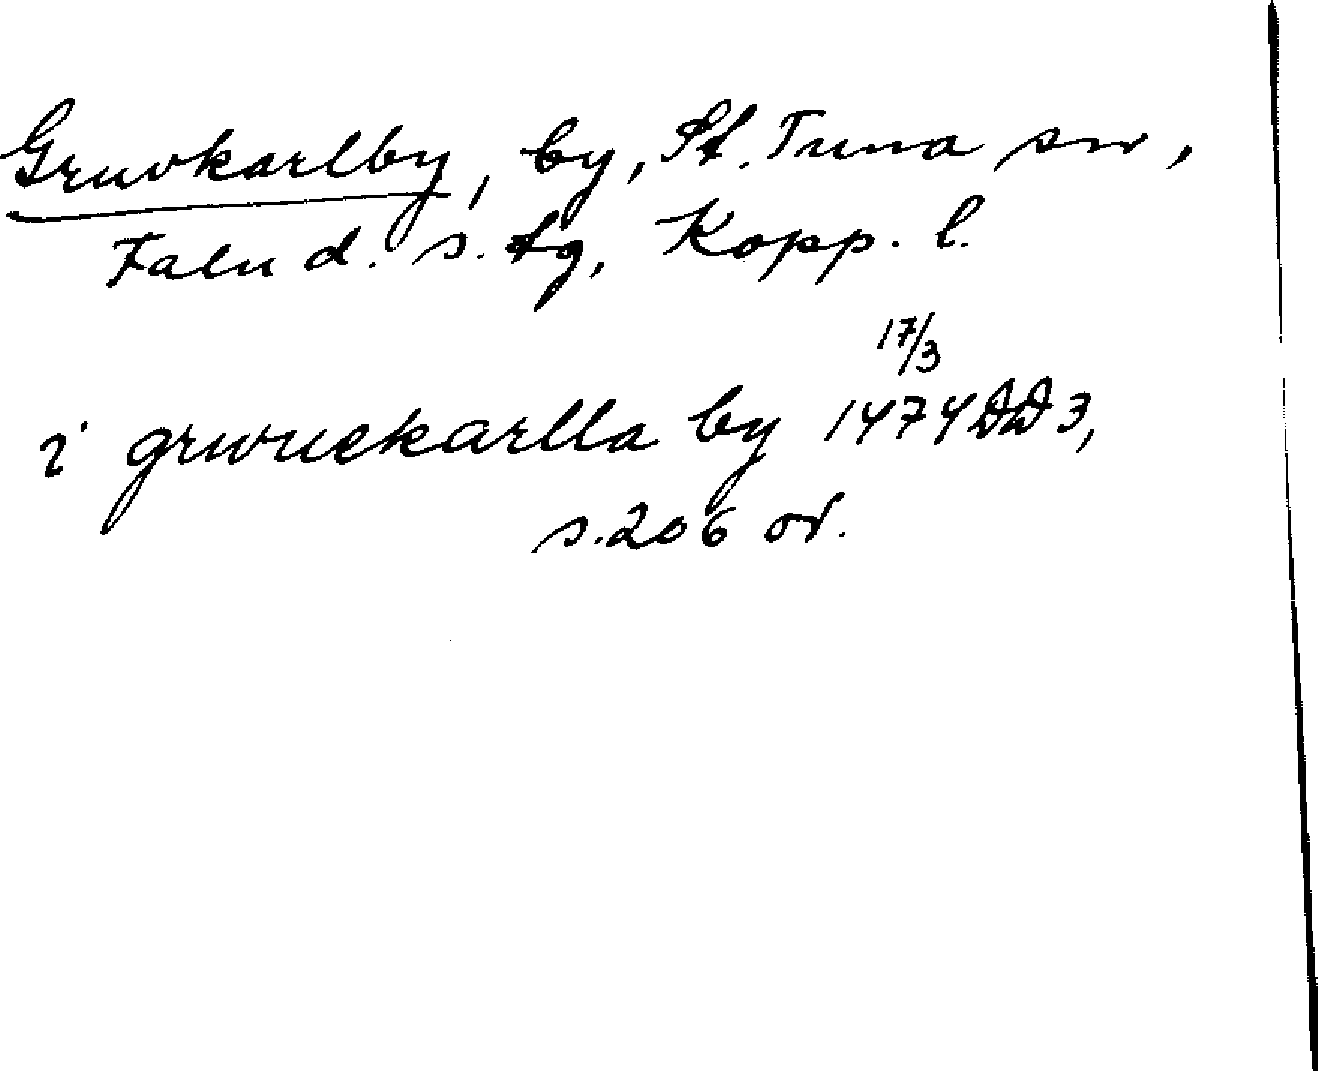 Gruvkarlby, by, St. Tuna sn,
Falu d. s. tg, Kopp. l.
17/3
i gruvuekarlla by 1474 DD 3,
s. 206 or.